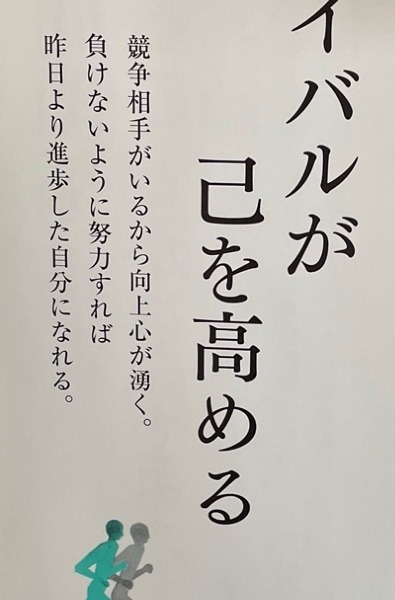 イバルが
己を高める
競争相手がいるから向上心が湧く。
負けないように努力すれば
昨日より進歩した自分になれる。